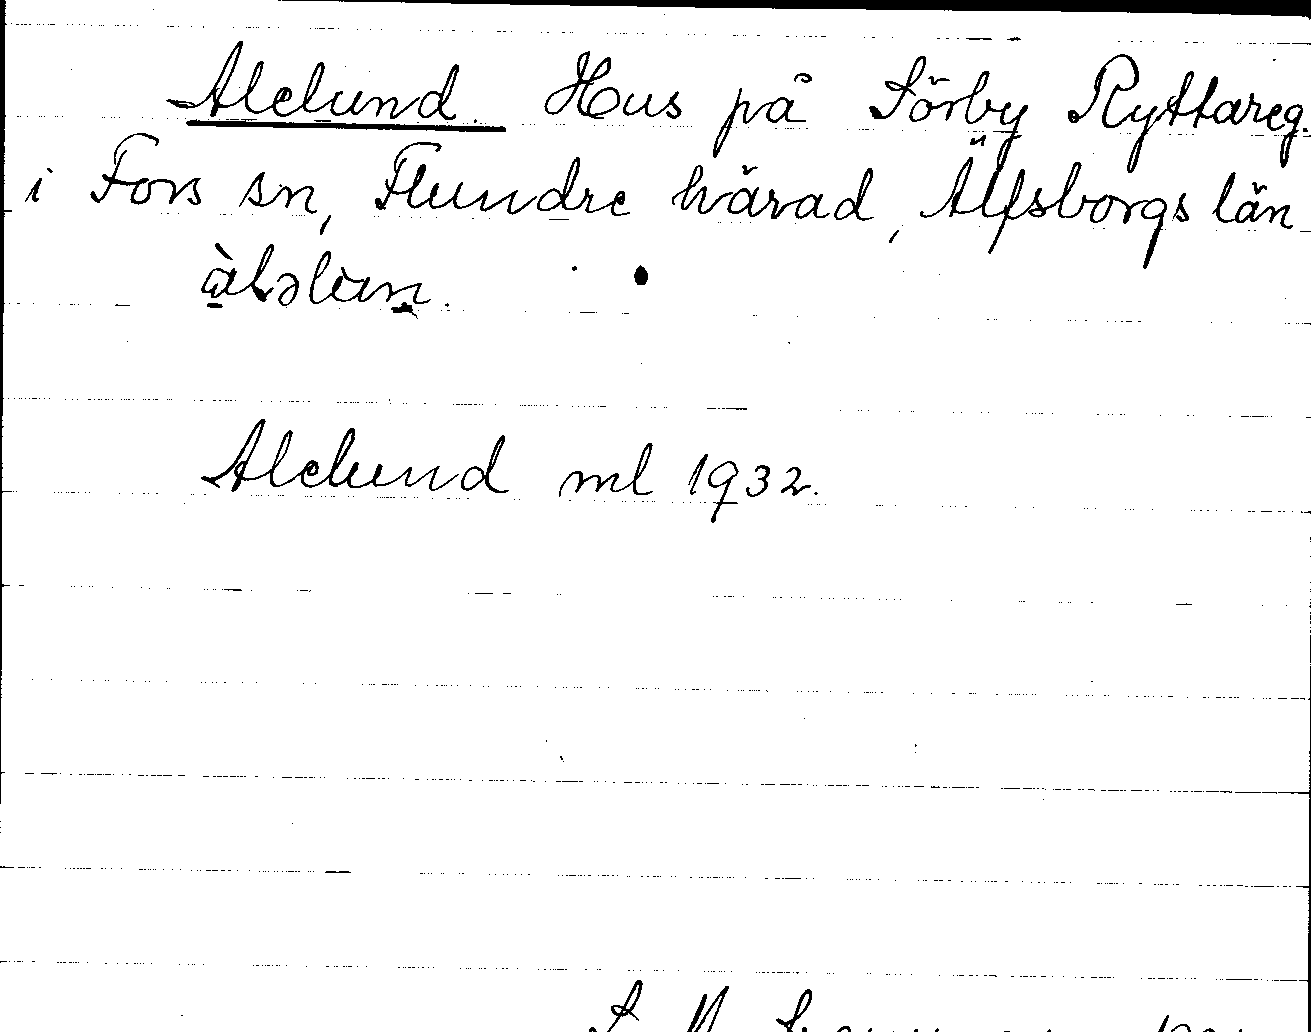 Alelund. Hus på Sörby Ryttareg.
i Fors sn, Flundre härad, Älfsborgs län
Alelund ml 1932.